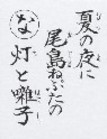 夏の夜に
尾島ねぷたの
な 灯と囃子